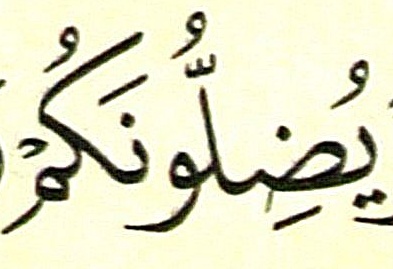 يُضِلُّونَكُمْ